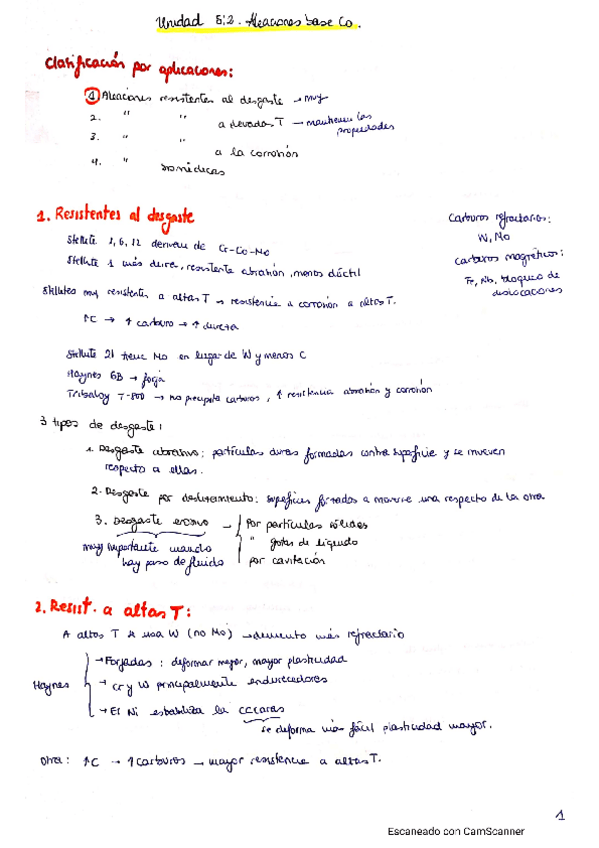 Unidad 5.2. Aleaciones base Co.
Clasificación por aplicaciones:
1 Aleaciones resistentes al desgaste → muy
2. " " a elevadas T → mantienen las propiedades
3. " " a la corrosión
4. " biomédicas
1. Resistentes al desgaste
Stellite 1, 6, 12 derivan de Cr-Co-Mo
Stellite 1 más dura, resistente abrasión, menos dúctil
Carburos refractarios:
W, Mo
carburos magnéticos:
Fe, Nb, bloqueo de
dislocaciones
Stellites muy resistentes a altas T → resistencia a corrosión a altas T.
↑C → ↑ carburo → ↑ dureza
Stellite 21 tiene Mo en lugar de W y menos C
Haynes 6B → forja
Tribaloy T-800 → no precipita carburos, ↑ resistencia abrasión y corrosión
3 tipos de desgaste:
1. Desgaste abrasivo: partículas duras formadas contra superficie y se mueven
respecto a ellas.
2. Desgaste por deslizamiento: superficies forzadas a moverse una respecto de la otra.
3. Desgaste erosivo → por partículas sólidas
" gotas de líquido
por cavitación
muy importante cuando
hay paso de fluido
2. Resist. a altas T:
A altas T se usa W (no Mo) → elemento más refractario
Haynes
→ Forjadas: deformar mejor, mayor plasticidad
→ Cr y W principalmente endurecedores
→ El Ni estabiliza la cccaras
se deforma más fácil plasticidad mayor.
Otra: ↑C → ↑ carburos → mayor resistencia a altas T.
1
Escaneado con CamScanner